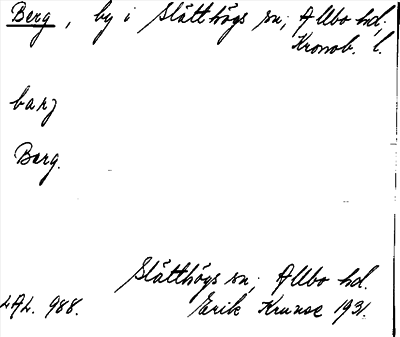 Berg, by i Slätthögs sn; Allbo hd.
Kronob. l.
barj
Berg.
Slätthögs sn; Allbo hd.
LAL. 988. Erik Kruuse 1931.